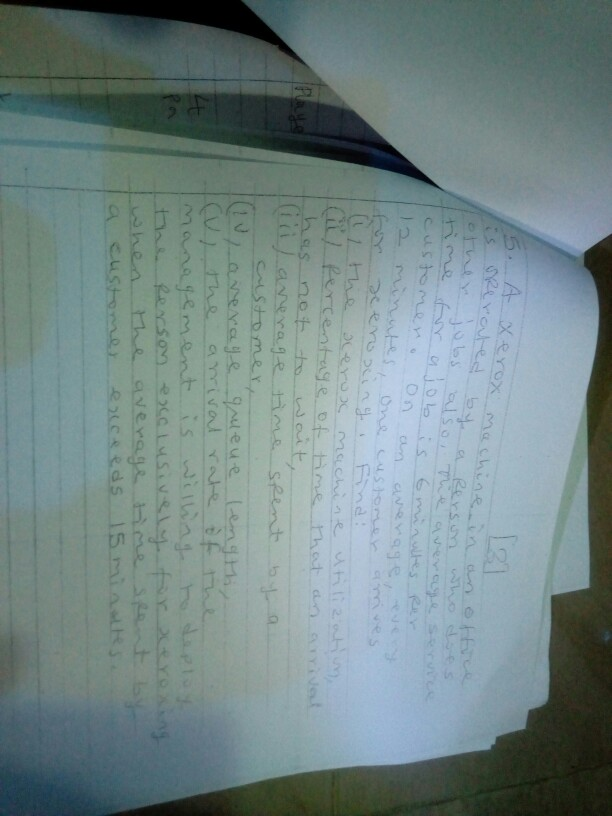 [8]
5. A xerox machine in an office
is operated by a person who does
other jobs also, The average service
time for a job is 6 minutes per
customer. On an average, every
12 minutes, one customer arrives
for xeroxing. Find:
(i) the xerox machine utilization,
(ii) percentage of time that an arrival
has not to wait,
(iii) average time spent by a
customer,
(iv) average queue length,
(v) the arrival rate if the
management is willing to deploy
the person exclusively for xeroxing
when the average time spent by
a customer exceeds 15 minutes.
Page
4